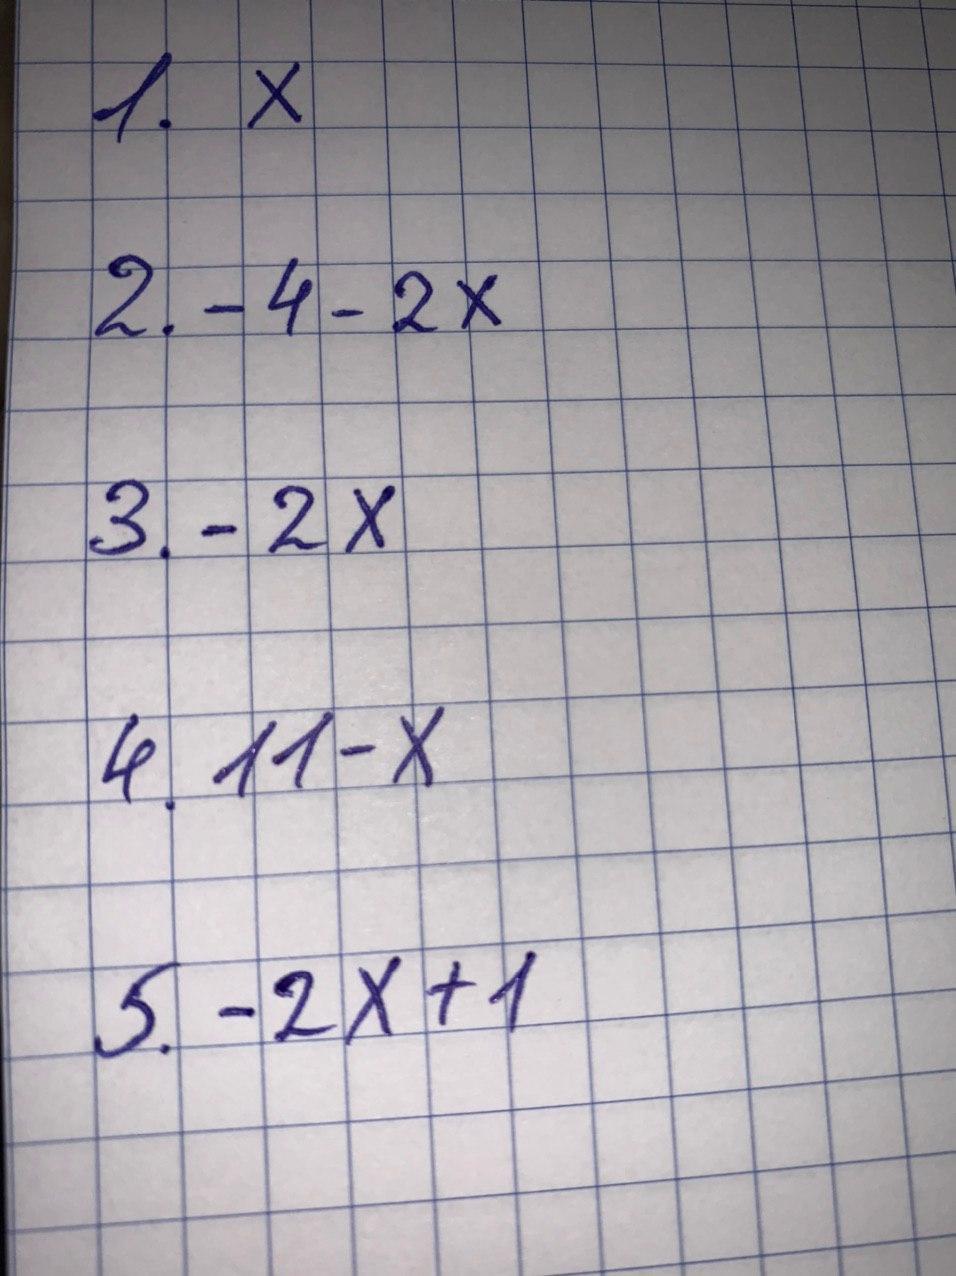 1. x
2. -4-2x
3. -2x
4. 11-x
5. -2x+1